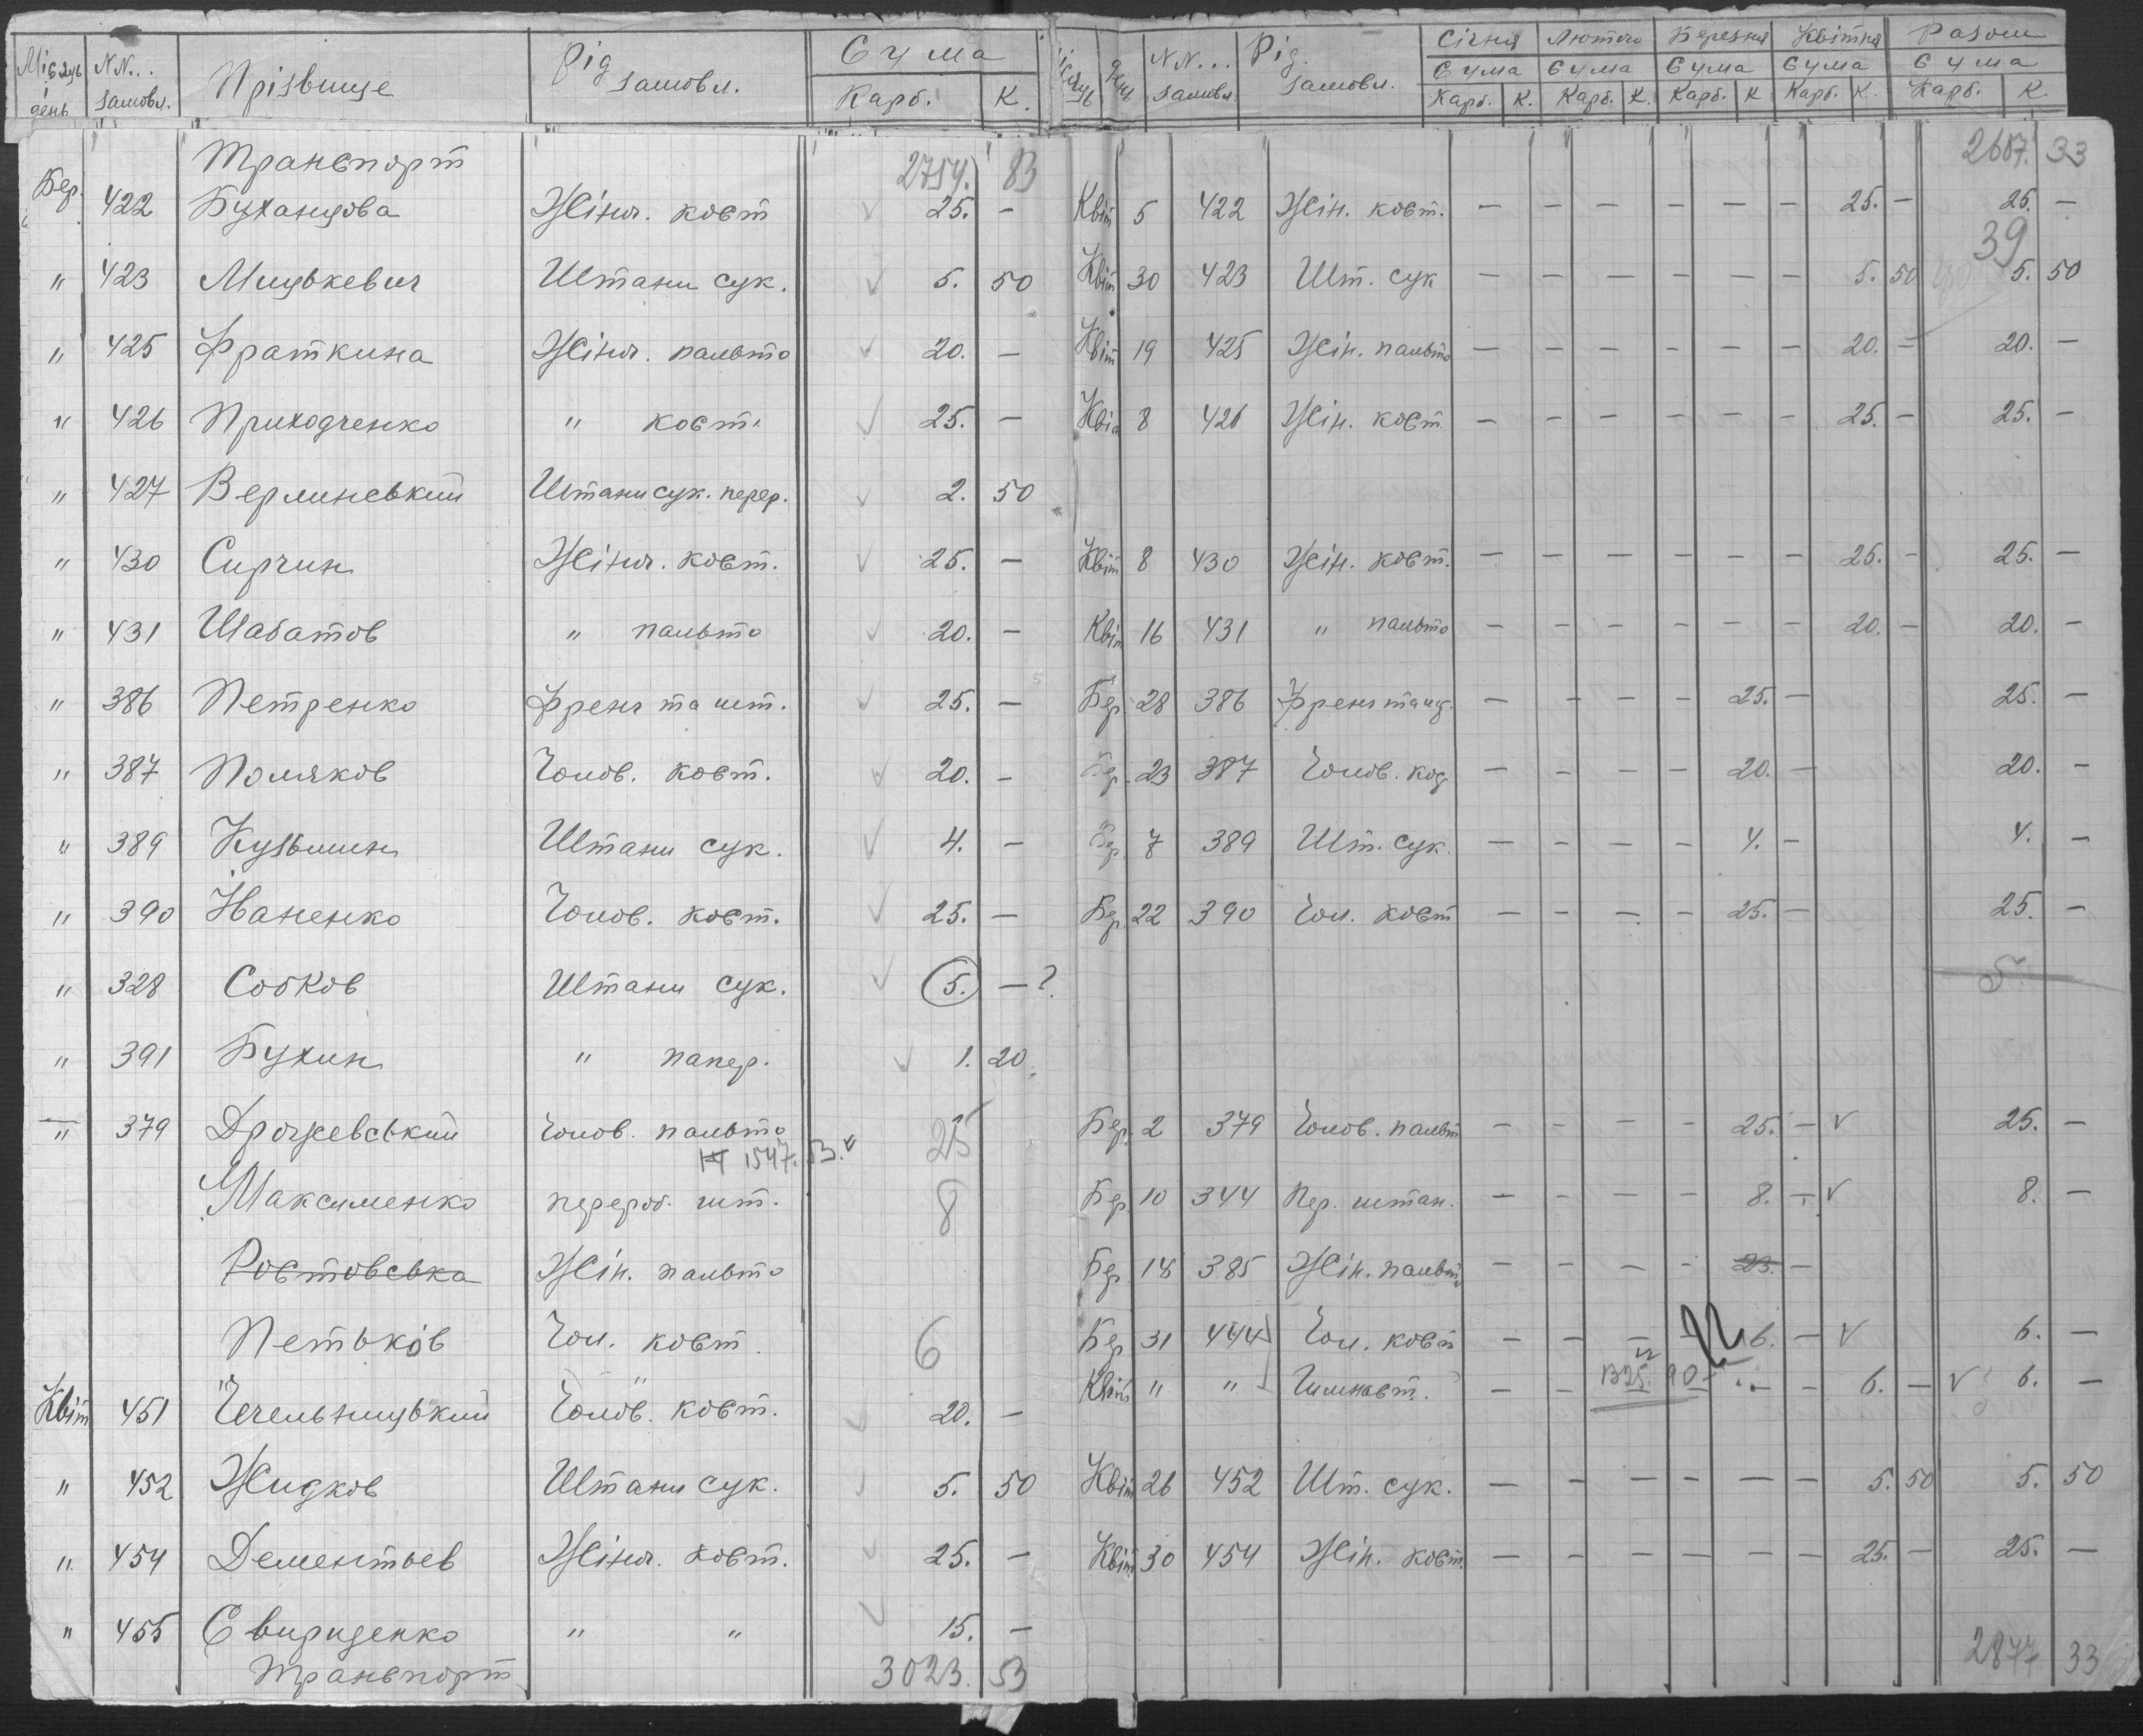 Місяць і день | NN... замовл. | Прізвище | Рід замовл. | Сума Карб. К. | Місяць | День | NN... замовл. | Рід замовл. | Січня Сума Карб. К. | Лютого Сума Карб. К. | Березня Сума Карб. К. | Квітня Сума Карб. К. | Разом Сума Карб. К.
Транспорт 2754. 83 2607. 33
Бер. 422 Буханцова Жіноч. кост 25. – Квіт 5 422 Жін. кост. – – – – – – 25. – 25. –
39
" 423 Мицькевич Штани сук. 5. 50 Квіт 30 423 Шт. сук – – – – – – 5. 50 5. 50
" 425 Фраткина Жіноч. пальто 20. – Квіт 19 425 Жін. пальто – – – – – – 20. – 20. –
" 426 Приходченко " кост. 25. – Квіт 8 426 Жін. кост. – – – – – – 25. – 25. –
" 427 Верлинський Штани сук. перер. 2. 50
" 430 Сирчин Жіноч. кост. 25. – Квіт 8 430 Жін. кост. – – – – – – 25. – 25. –
" 431 Шабатов " пальто 20. – Квіт 16 431 " пальто – – – – – – 20. – 20. –
" 386 Петренко Френч та шт. 25. – Бер. 28 386 Френч – – – – 25. – 25. –
" 387 Поляков Чолов. кост. 20. – Бер. 23 387 Чолов. – – – – 20. – 20. –
" 389 Кузьмин Штани сук. 4. – Бер. 7 389 Шт. сук. – – – – 4. – 4. –
" 390 Іваненко Чолов. кост. 25. – Бер. 22 390 Чол. кост – – – – 25. – 25. –
" 328 Собков Штани сук. 5. – ? 5.
" 391 Бухин " папер. 1. 20
" 379 Дрожевський Чолов. пальто 25 Бер. 2 379 Чолов. пальт – – – – 25. – v 25. –
1547. 53. v
Максименко перероб. шт. 8 Бер. 10 344 Пер. штан. – – – – 8. – v 8. –
Ростовська Жін. пальто Бер. 18 385 Жін. пальто – – – – 23. –
Петьков Чол. кост. 6 Бер 31 444 Чол. кост – – – – 6. – v 6. –
Квіт " " – – 1325. 90 – 6. – v 6. –
Квіт 451 Чечельницький Чолов. кост. 20. –
" 452 Жидков Штани сук. 5. 50 Квіт 26 452 Шт. сук. – – – – – – 5. 50 5. 50
" 454 Дементьев Жіноч. кост. 25. – Квіт 30 454 Жін. кост. – – – – – – 25. – 25. –
" 455 Свириденко " " 15. –
Транспорт 3023. 53 2877 33